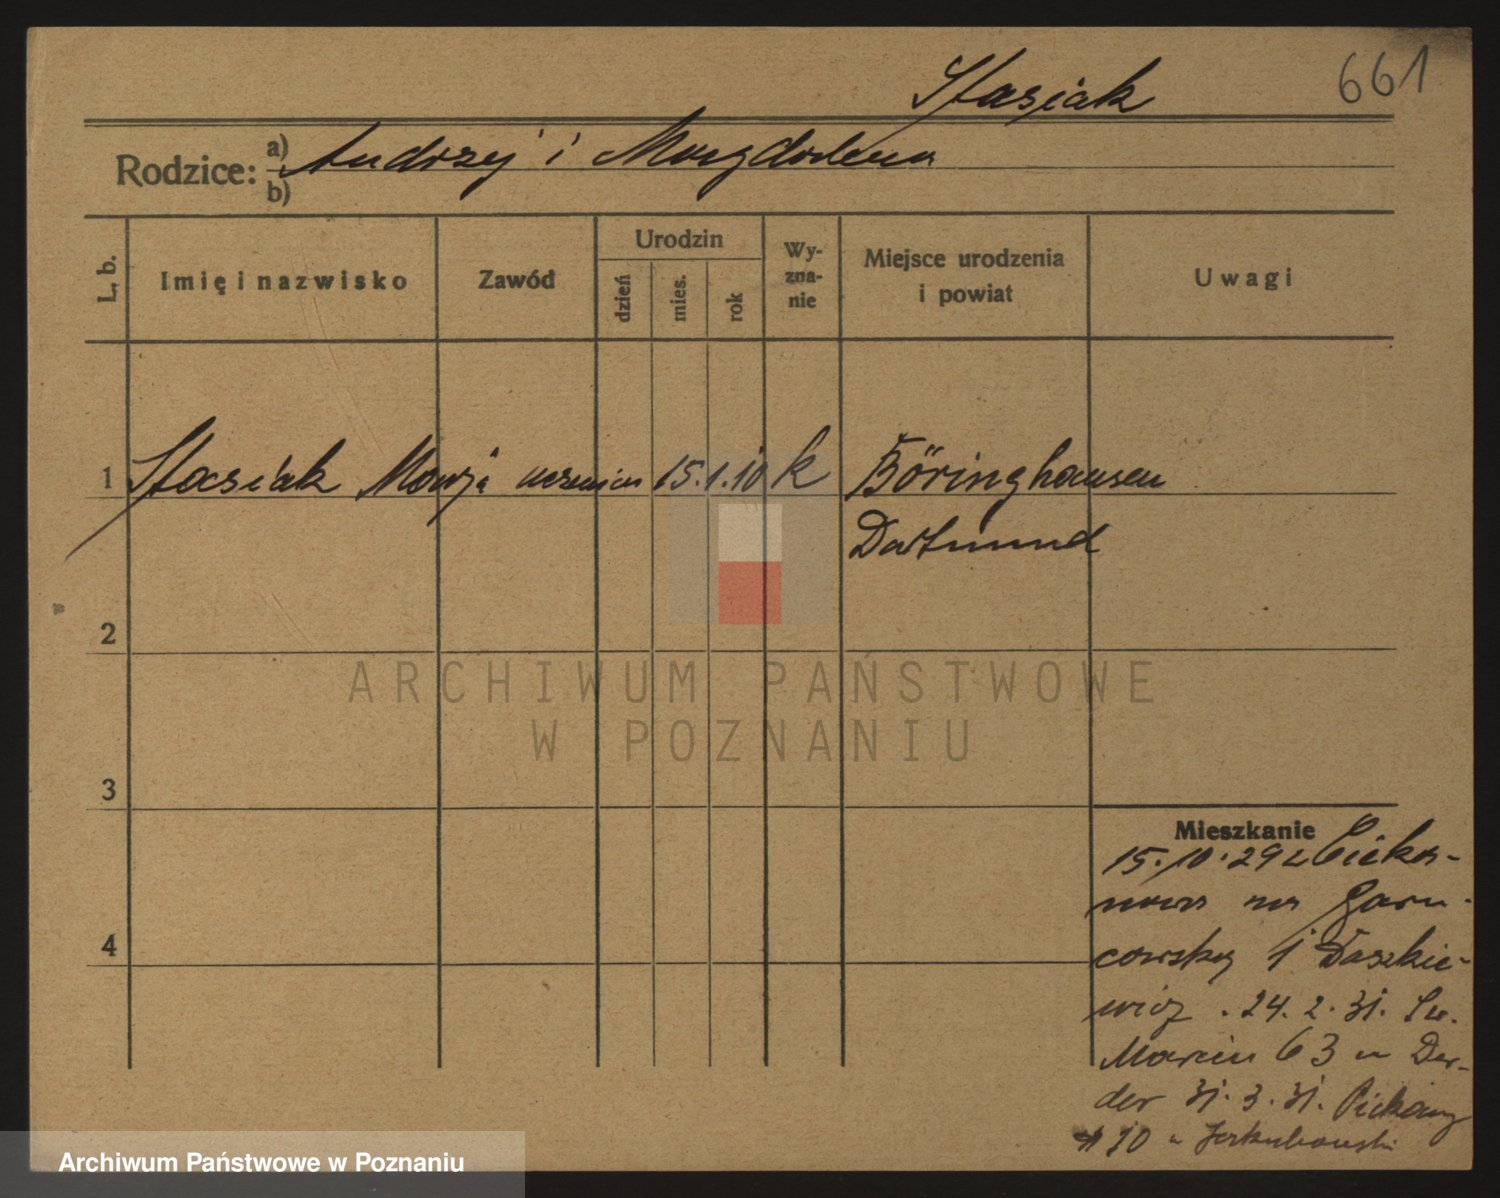 Stasiak
661
Rodzice: a) Andrzej i Magdalena
b)
L. b.
Imię i nazwisko
Zawód
Urodzin
dzień
mies.
rok
Wy-
zna-
nie
Miejsce urodzenia
i powiat
Uwagi
1 Stasiak Marja uczenica 15.1.10 k Böringhausen
Dortmund
2
3
4
ARCHIWUM PAŃSTWOWE
W POZNANIU
Mieszkanie
15.10.29 z
na Garn-
cowsky 1 Daszkie-
wicz . 24.2.31. Św.
Marcin 63 u Der-
der 31.3.31. Piekary
10 u Jakubowski
Archiwum Państwowe w Poznaniu